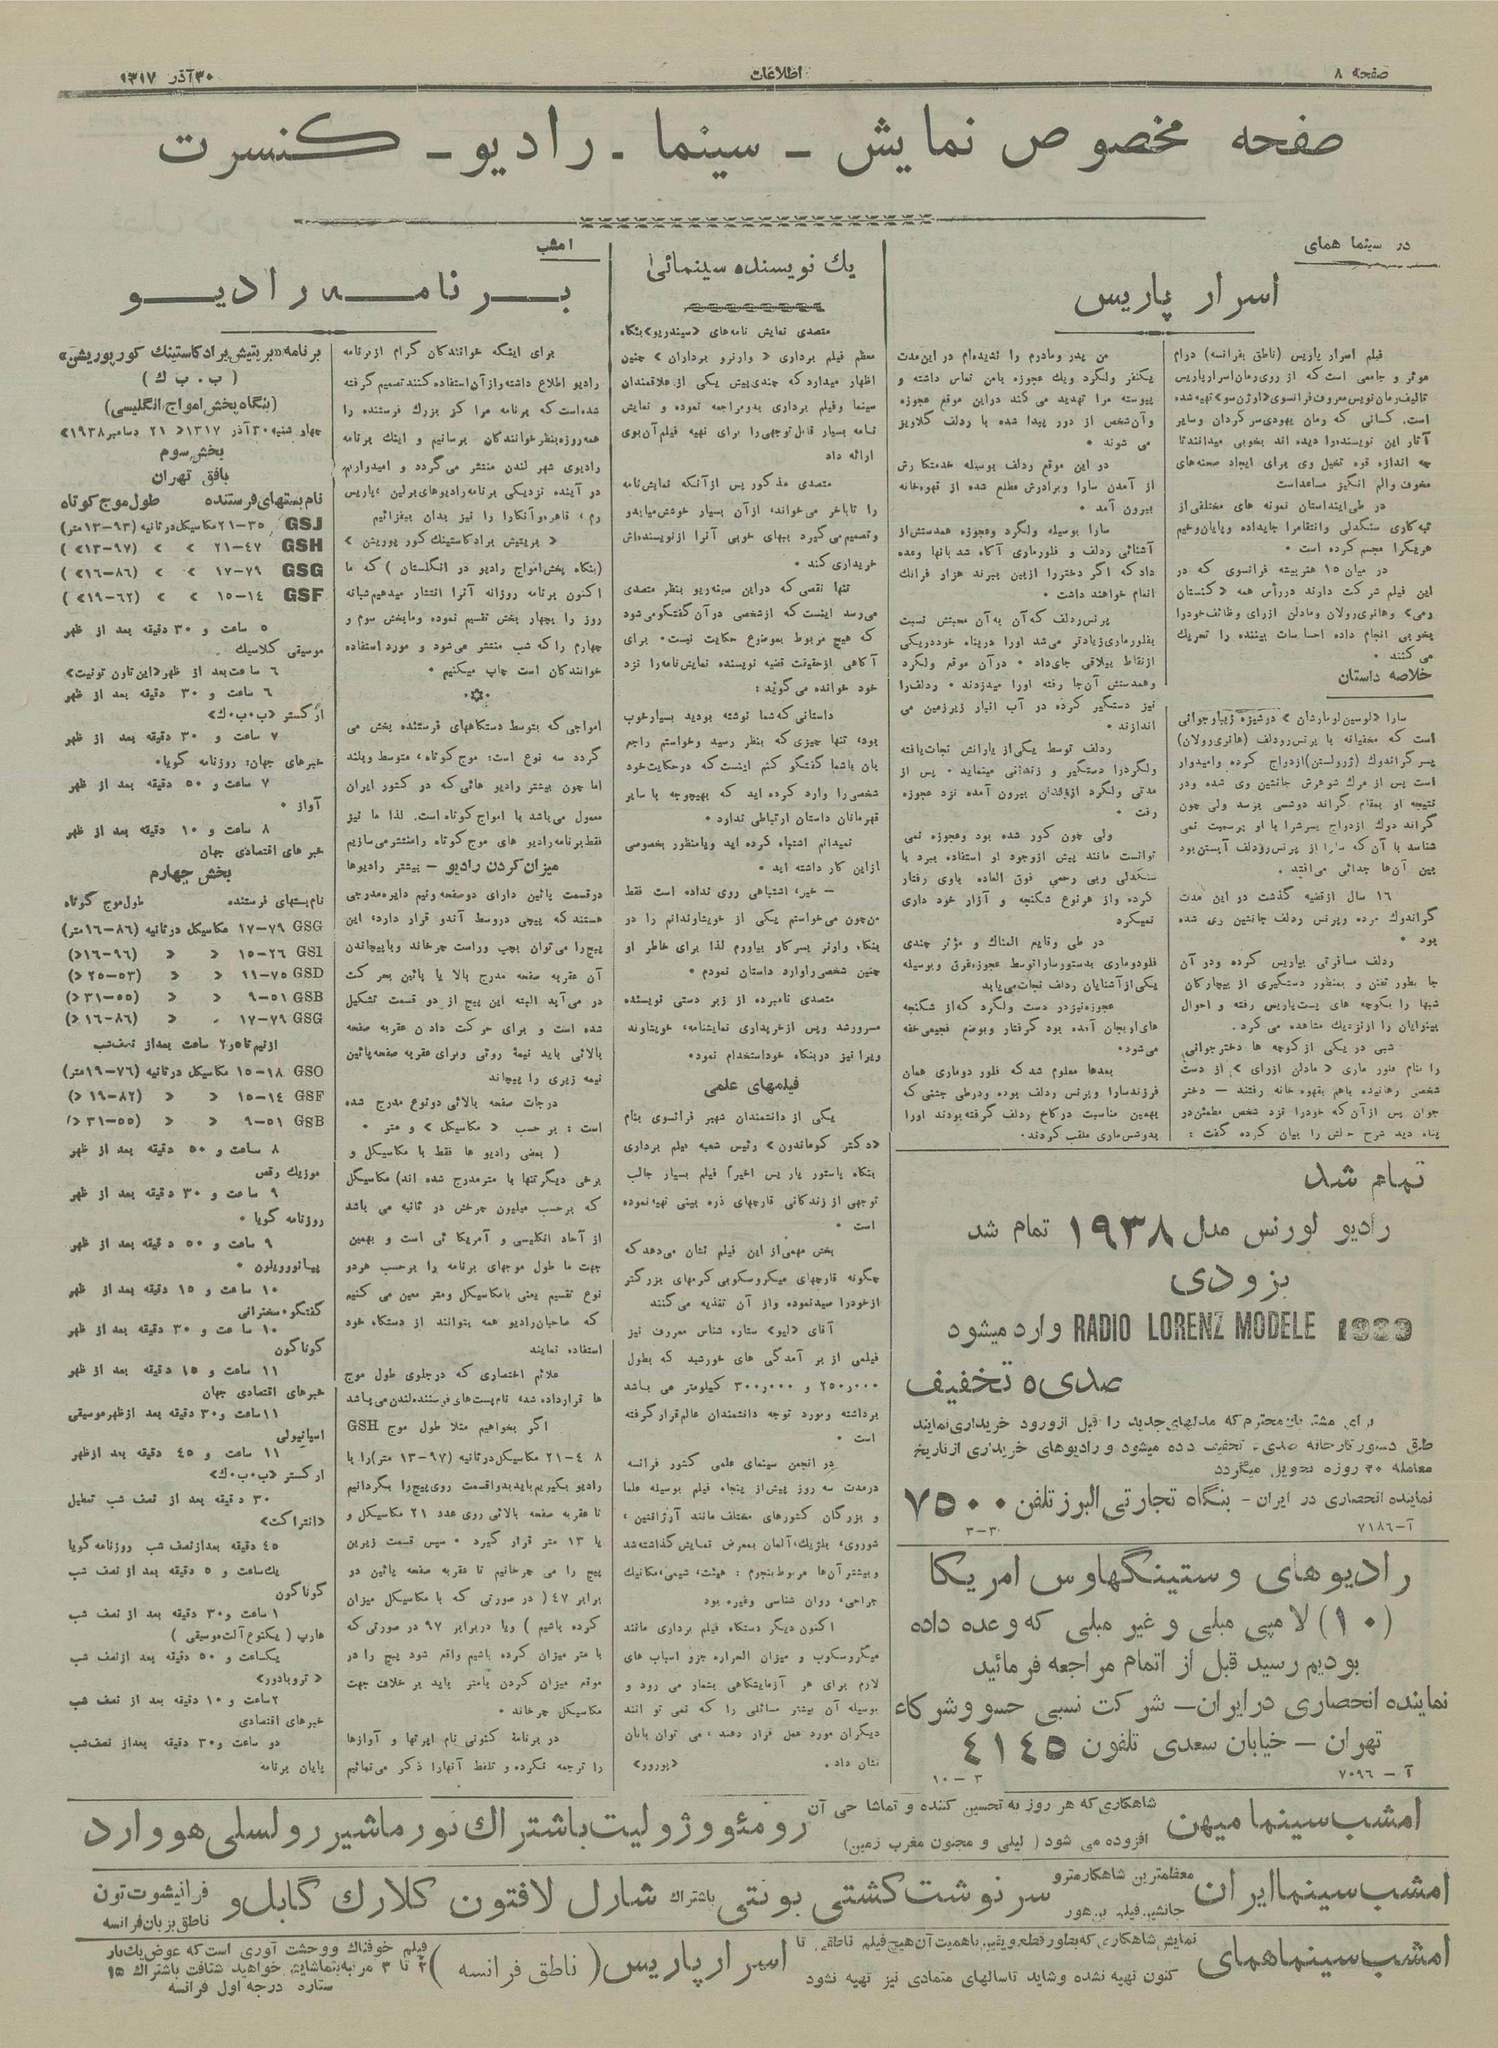 صفحه ۸
اطلاعات
۳۰ آذر ۱۳۱۷
صفحه مخصوص نمایش - سینما - رادیو - کنسرت
در سینما همای
اسرار پاریس
فیلم اسرار پاریس (ناطق بفرانسه) درام
موثر و جامعی است که از روی رمان اسرار پاریس
تالیف رمان نویس معروف فرانسوی «اوژن سو» تهیه شده
است. کسانی که رمان یهودی سرگردان وسایر
آثار این نویسنده را دیده اند بخوبی میدانند تا
چه اندازه قوه تخیل وی برای ایجاد صحنه‌های
مخوف والم انگیز مساعداست
در طی اینداستان نمونه های مختلفی از
تبه کاری سنگدلی وانتقام را جایداده و پایان وخیم
هریک را مجسم کرده است *
در میان ۱۵ هنرپیشه فرانسوی که در
این فیلم شرکت دارند دررأس همه «کنستان
رمی» وهانری رولان ومادلن ازرای وظائف خودرا
بخوبی انجام داده احساسات بیننده را تحریک
می کنند *
خلاصه داستان
سارا «لوسین لومارشان» دوشیزه زیبا وجوانی
است که مخفیانه با پرنس رودلف (هانری رولان)
پسر گراندوک (ژرولستن) ازدواج کرده وامیدوار
است پس از مرگ شوهرش جانشین وی شده ودر
نتیجه او بمقام گراند دوشسی برسد ولی چون
گراند دوک ازدواج پسرشرا با او برسمیت نمی
شناسد با آن که سارا از پرنس رودلف آبستن بود
بین آن‌ها جدائی می‌افتد.
۱۶ سال ازقضیه گذشت در این مدت
گراندوک مرده وپرنس ردلف جانشین وی شده
بود *
ردلف مسافرتی بپاریس کرده ودر آن
جا بطور تفنن و بمنظور دستگیری از بیچارگان
شبها را بکوچه های پست پاریس رفته و احوال
بینوایان را از نزدیک مشاهده می کرد.
شبی در یکی از کوچه ها دختر جوانی
را بنام فلور ماری «مادلن ازرای» از دست
شخصی رهانیده باهم بقهوه خانه رفتند - دختر
جوان پس از آن که خودرا نزد شخص مطمئن در
پناه دید شرح حالش را بیان کرده گفت :
من پدر ومادرم را ندیده‌ام در این مدت
یکنفر ولگرد ویک عجوزه بامن تماس داشته و
پیوسته مرا تهدید می کند دراین موقع عجوزه
وآن شخص از درر پیدا شده با ردلف گلاویز
می شوند *
در این موقع ردلف بوسیله خدمتکارش
از آمدن سارا وبرادرش مطلع شده از قهوه خانه
بیرون آمد *
سارا بوسیله ولگرد وعجوزه همدستش از
آشنائی ردلف و فلورماری آگاه شد بانها وعده
داد که اگر دختررا ازبین ببرند هزار فرانک
انعام خواهند داشت *
پرنس ردلف که آن به آن محبتش نسبت
بفلورماری زیادتر می شد اورا درپناه خود در یکی
ازنقاط ییلاقی جای داد * در آن موقع ولگرد
وهمدستش آن جا رفته اورا میدزدند * ردلف را
نیز دستگیر کرده در آب انبار زیرزمین می
اندازند *
ردلف توسط یکی از یارانش نجات یافته
ولگردرا دستگیر و زندانی مینماید * پس از
مدتی ولگرد از زندان بیرون آمده نزد عجوزه
رفت *
ولی چون کور شده بود وعجوزه نمی
توانست مانند پیش از وجود او استفاده ببرد با
سنگدلی وبی رحمی فوق العاده باوی رفتار
کرده واز هرنوع شکنجه و آزار خود داری
نمیکرد
در طی وقایع المناک و مؤثر چندی
فلورماری بدستور سارا توسط عجوزه غرق و بوسیله
یکی از آشنایان ردلف نجات می یابد
عجوزه نیز در دست ولگرد که از شکنجه
های او بجان آمده بود گرفتار و بوضع فجیعی خفه
می شود *
بعدها معلوم شد که فلور دوماری همان
فرزند سارا وپرنس ردلف بوده ودرطی جشنی که
بهمین مناسبت در کاخ ردلف گرفته بودند اورا
پدوشس ماری ملقب کردند.
تمام شد
رادیو لورنس مدل ۱۹۳۸ تمام شد
بزودی
RADIO LORENZ MODELE 1939 وارد میشود
صدی ۵ تخفیف
برای مشتریان محترم که مدلهای جدید را قبل از ورود خریداری نمایند
طبق دستور کارخانه صدی۵ تخفیف داده میشود و رادیوهای خریداری از تاریخ
معامله ۳۰ روزه تحویل میگردد
نماینده انحصاری در ایران - بنگاه تجارتی البرز تلفن ۷۵۰۰
آ-۷۱۸۶ ۳-۳
رادیوهای وستینگهاوس امریکا
(۱۰) لامپی مبلی و غیر مبلی که وعده داده
بودیم رسید قبل از اتمام مراجعه فرمائید
نماینده انحصاری در ایران - شرکت نسبی حسو و شرکاء
تهران - خیابان سعدی تلفون ۴۱۴۵
آ - ۷۰۹۶ ۳-۱۰
یک نویسنده سینمائی
متصدی نمایش نامه‌های «سیندریو» بنگاه
معظم فیلم برداری «وارنرو برداران» چنین
اظهار میدارد که چندی پیش یکی از علاقمندان
سینما وفیلم برداری بدو مراجعه نموده و نمایش
نامه بسیار قابل توجهی را برای تهیه فیلم آن بوی
ارائه داد
متصدی مذکور پس از آنکه نمایش نامه
را تا بآخر می خواند، از آن بسیار خوشش می‌آید و
وتصمیم می گیرد ببهای خوبی آنرا از نویسنده‌اش
خریداری کند *
تنها نقصی که دراین سینه‌ریو بنظر متصدی
می‌رسد اینست که از شخصی در آن گفتگو می‌شود
که هیچ مربوط بموضوع حکایت نیست * برای
آگاهی از حقیقت قضیه نویسنده نمایش نامه‌را نزد
خود خوانده می گوید :
داستانی که شما نوشته بودید بسیار خوب
بود، تنها چیزی که بنظر رسید وخواستم راجع
بان باشما گفتگو کنم اینست که در حکایت خود
شخصی را وارد کرده اید که بهیچوجه با سایر
قهرمانان داستان ارتباطی ندارد *
نمیدانم اشتباه کرده اید ویا منظور بخصوصی
ازاین کار داشته اید *
- خیر، اشتباهی روی نداده است فقط
من چون می‌خواستم یکی از خویشاوندانم را در
بنگاه وارنر بسر کار بیاورم لذا برای خاطر او
چنین شخصی را وارد داستان نمودم *
متصدی نامبرده از زبر دستی نویسنده
مسرور شد و پس از خریداری نمایشنامه، خویشاوند
ویرا نیز در بنگاه خود استخدام نمود *
فیلمهای علمی
یکی از دانشمندان شهیر فرانسوی بنام
«دکتر کوماندون» رئیس شعبه فیلم برداری
بنگاه پاستور پاریس اخیراً فیلم بسیار جالب
توجهی از زندگانی قارچهای ذره بینی تهیه نموده
است *
بخش مهمی از این فیلم نشان می‌دهد که
چگونه قارچهای میکروسکوپی کرمهای بزرگتر
از خود را صید نموده واز آن تغذیه می کنند
آقای «لیو» ستاره شناس معروف نیز
فیلمی از بر آمدگی های خورشید که بطول
۲۵۰ر۰۰۰ و ۳۰۰ر۰۰۰ کیلومتر می باشد
برداشته ومورد توجه دانشمندان عالم قرار گرفته
است *
در انجمن سینمای علمی کشور فرانسه
درمدت سه روز بیش از پنجاه فیلم بوسیله علما
و بزرگان کشورهای مختلف مانند آرژانتین،
شوروی، بلژیک، آلمان بمعرض نمایش گذاشته شد
وبیشتر آن‌ها مربوط بنجوم : هیئت، شیمی، مکانیک
جراحی، روان شناسی وغیره بود
اکنون دیگر دستگاه فیلم برداری مانند
میکروسکوب و میزان الحراره جزو اسباب های
لازم برای هر آزمایشگاهی بشمار می رود و
بوسیله آن بیشتر مسائلی را که نمی توانند
دیگران مورد عمل قرار دهند، می توان بانان
نشان داد.
امشب
برنامه رادیو
برای اینکه خوانندگان گرام از برنامه
رادیو اطلاع داشته واز آن استفاده کنند تصمیم گرفته
شده است که برنامه مراکز بزرگ فرستنده را
همه روزه بنظر خوانندگان برسانیم و اینک برنامه
رادیوی شهر لندن منتشر می گردد و امیدواریم
در آینده نزدیکی برنامه رادیوهای برلین، پاریس
رم، قاهره وآنکارا را نیز بدان بیفزائیم
«بریتیش برادکاستینک کورپوریشن»
(بنگاه پخش امواج رادیو در انگلستان) که ما
اکنون برنامه روزانه آنرا انتشار میدهیم شبانه
روز را بچهار بخش تقسیم نموده ومابخش سوم و
چهارم را که شب منتشر می‌شود و مورد استفاده
خوانندگان است چاپ میکنیم *
امواجی که بتوسط دستگاههای فرستنده پخش می
گردد سه نوع است: موج کوتاه، متوسط و بلند
اما چون بیشتر رادیو هائی که در کشور ایران
معمول می‌باشد با امواج کوتاه است. لذا ما نیز
فقط برنامه رادیو های موج کوتاه را منتشر می‌سازیم
میزان کردن رادیو - بیشتر رادیوها
درقسمت پائین دارای دوصفحه ونیم دایره مدرجی
هستند که پیچی دروسط آندو قرار دارد، این
پیچ را می‌توان بچپ وراست چرخاند وباپیچاندن
آن عقربه صفحه مدرج بالا یا پائین بحرکت
در می‌آید البته این پیچ از دو قسمت تشکیل
شده است و برای حرکت دادن عقربه صفحه
بالائی باید نیمهٔ روئی وبرای عقربه صفحه پائین
نیمه زیری را پیچاند
درجات صفحه بالائی دونوع مدرج شده
است : بر حسب «مکاسیکل» و متر *
( بعضی رادیو ها فقط با مکاسیکل و
برخی دیگر تنها با متر مدرج شده اند) مکاسیکل
که برحسب میلیون چرخش در ثانیه می باشد
از آحاد انگلیسی و آمریکائی است و بهمین
جهت ما طول موجهای برنامه را برحسب هردو
نوع تقسیم یعنی بامکاسیکل ومتر معین می کنیم
که صاحبان رادیو همه بتوانند از دستگاه خود
استفاده نمایند
علائم اختصاری که درجلوی طول موج
ها قرار داده شده، نام پست های فرستنده لندن می‌باشد
اگر بخواهیم مثلا طول موج GSH
مکاسیکل در ثانیه (۹۷-۱۳ متر) را با
رادیو بگیریم باید بدواقسمت روی پیچ را بگردانیم
تا عقربه صفحه بالائی روی عدد ۲۱ مکاسیکل و
یا ۱۳ متر قرار گیرد * سپس قسمت زیرین
پیچ را می چرخانیم تا عقربه صفحه پائین در
برابر ۴۷ ( در صورتی که با مکاسیکل میزان
کرده باشیم ) ویا دربرابر ۹۷ در صورتی که
با متر میزان کرده باشیم واقع شود پیچ را در
موقع میزان کردن بامتر باید بر خلاف جهت
مکاسیکل چرخاند *
در برنامهٔ کنونی نام اپرتها و آوازها
را ترجمه نکرده و تلفظ آنهارا ذکر می‌نمائیم
برنامه «بریتیش برادکاستینک کورپوریشن»
( ب . ب ك )
(بنگاه پخش امواج انگلیسی)
چهارشنبه ۳۰ آذر ۱۳۱۷ «۲۱ دسامبر ۱۹۳۸»
بخش سوم
بافق تهران
نام پستهای فرستنده طول موج کوتاه
GSJ ۲۱-۳۵ مکاسیکل در ثانیه (۹۳-۱۳ متر)
GSH ۲۱-۴۷ » » (۹۷-۱۳» )
GSG ۱۷-۷۹ » » (۸۶-۱۶» )
GSF ۱۵-۱۴ » » (۶۲-۱۹» )
۵ ساعت و ۳۰ دقیقه بعد از ظهر
موسیقی کلاسیک.
۶ ساعت بعد از ظهر «این تاون تونیت»
۶ ساعت و ۳۰ دقیقه بعد از ظهر
ارکستر «ب.ب.ك»
۷ ساعت و ۳۰ دقیقه بعد از ظهر
خبرهای جهان: روزنامه گویا*
۷ ساعت و ۵۰ دقیقه بعد از ظهر
آواز *
۸ ساعت و ۱۰ دقیقه بعد از ظهر
خبر های اقتصادی جهان
بخش چهارم
نام پستهای فرستنده طول موج کوتاه
GSG ۱۷-۷۹ مکاسیکل در ثانیه (۸۶-۱۶ متر)
GSI ۱۵-۲۶ » » (۹۶-۱۶»)
GSD ۱۱-۷۵ » » (۵۳-۲۵»)
GSB ۹-۵۱ » » (۵۵-۳۱»)
GSG ۱۷-۷۹ » » (۸۶-۱۶»)
از نیم تا ۲ر۵ ساعت بعد از نصف شب
GSO ۱۵-۱۸ مکاسیکل در ثانیه (۷۶-۱۹ متر)
GSF ۱۵-۱۴ » » (۸۲-۱۹»)
GSB ۹-۵۱ » » (۵۵-۳۱»)
۸ ساعت و ۵۰ دقیقه بعد از ظهر
موزیک رقص
۹ ساعت و ۳۰ دقیقه بعد از ظهر
روزنامه گویا *
۹ ساعت و ۵۰ دقیقه بعد از ظهر
پیانو وویلون *
۱۰ ساعت و ۱۵ دقیقه بعد از ظهر
گفتگو * سخنرانی
۱۰ ساعت و ۳۰ دقیقه بعد از ظهر
گوناگون
۱۱ ساعت و ۱۵ دقیقه بعد از ظهر
خبرهای اقتصادی جهان
۱۱ ساعت و ۳۰ دقیقه بعد از ظهر موسیقی
اسپانیولی
۱۱ ساعت و ۴۵ دقیقه بعد از ظهر
ارکستر «ب.ب.ك»
۳۰ دقیقه بعد از نصف شب تعطیل
«انتراکت»
۴۵ دقیقه بعد از نصف شب روزنامه گویا
یک ساعت و ۵ دقیقه بعد از نصف شب
گوناگون
۱ ساعت و ۳۰ دقیقه بعد از نصف شب
هارپ ( یکنوع آلت موسیقی )
یکساعت و ۵۰ دقیقه بعد از نصف شب
«تروبادور»
۲ ساعت و ۱۰ دقیقه بعد از نصف شب
خبرهای اقتصادی
دو ساعت و ۳۰ دقیقه بعد از نصف شب
پایان برنامه
امشب سینما میهن
شاهکاری که هر روز به تحسین کننده و تماشاچی آن
افزوده می شود ( لیلی و مجنون مغرب زمین)
رومئو و ژولیت باشتراک نورماشیرر و لسلی هووارد
امشب سینما ایران
معظمترین شاهکار مترو
جانشین فیلم بن هور
سرنوشت کشتی بونتی باشتراک شارل لافتون کلارک گابل و
فرانشوت تون
ناطق بزبان فرانسه
امشب سینما همای
نمایش شاهکاری که بطور قطع و یقین باهمیت آن هیچ فیلم ناطقی تا
کنون تهیه نشده وشاید تا سالهای متمادی نیز تهیه نشود
اسرار پاریس ( ناطق فرانسه )
فیلم خوفناک و وحشت آوری است که عوض یک بار
۲ تا ۳ مرتبه بتماشایش خواهید شتافت باشتراک ۱۵
ستاره درجه اول فرانسه